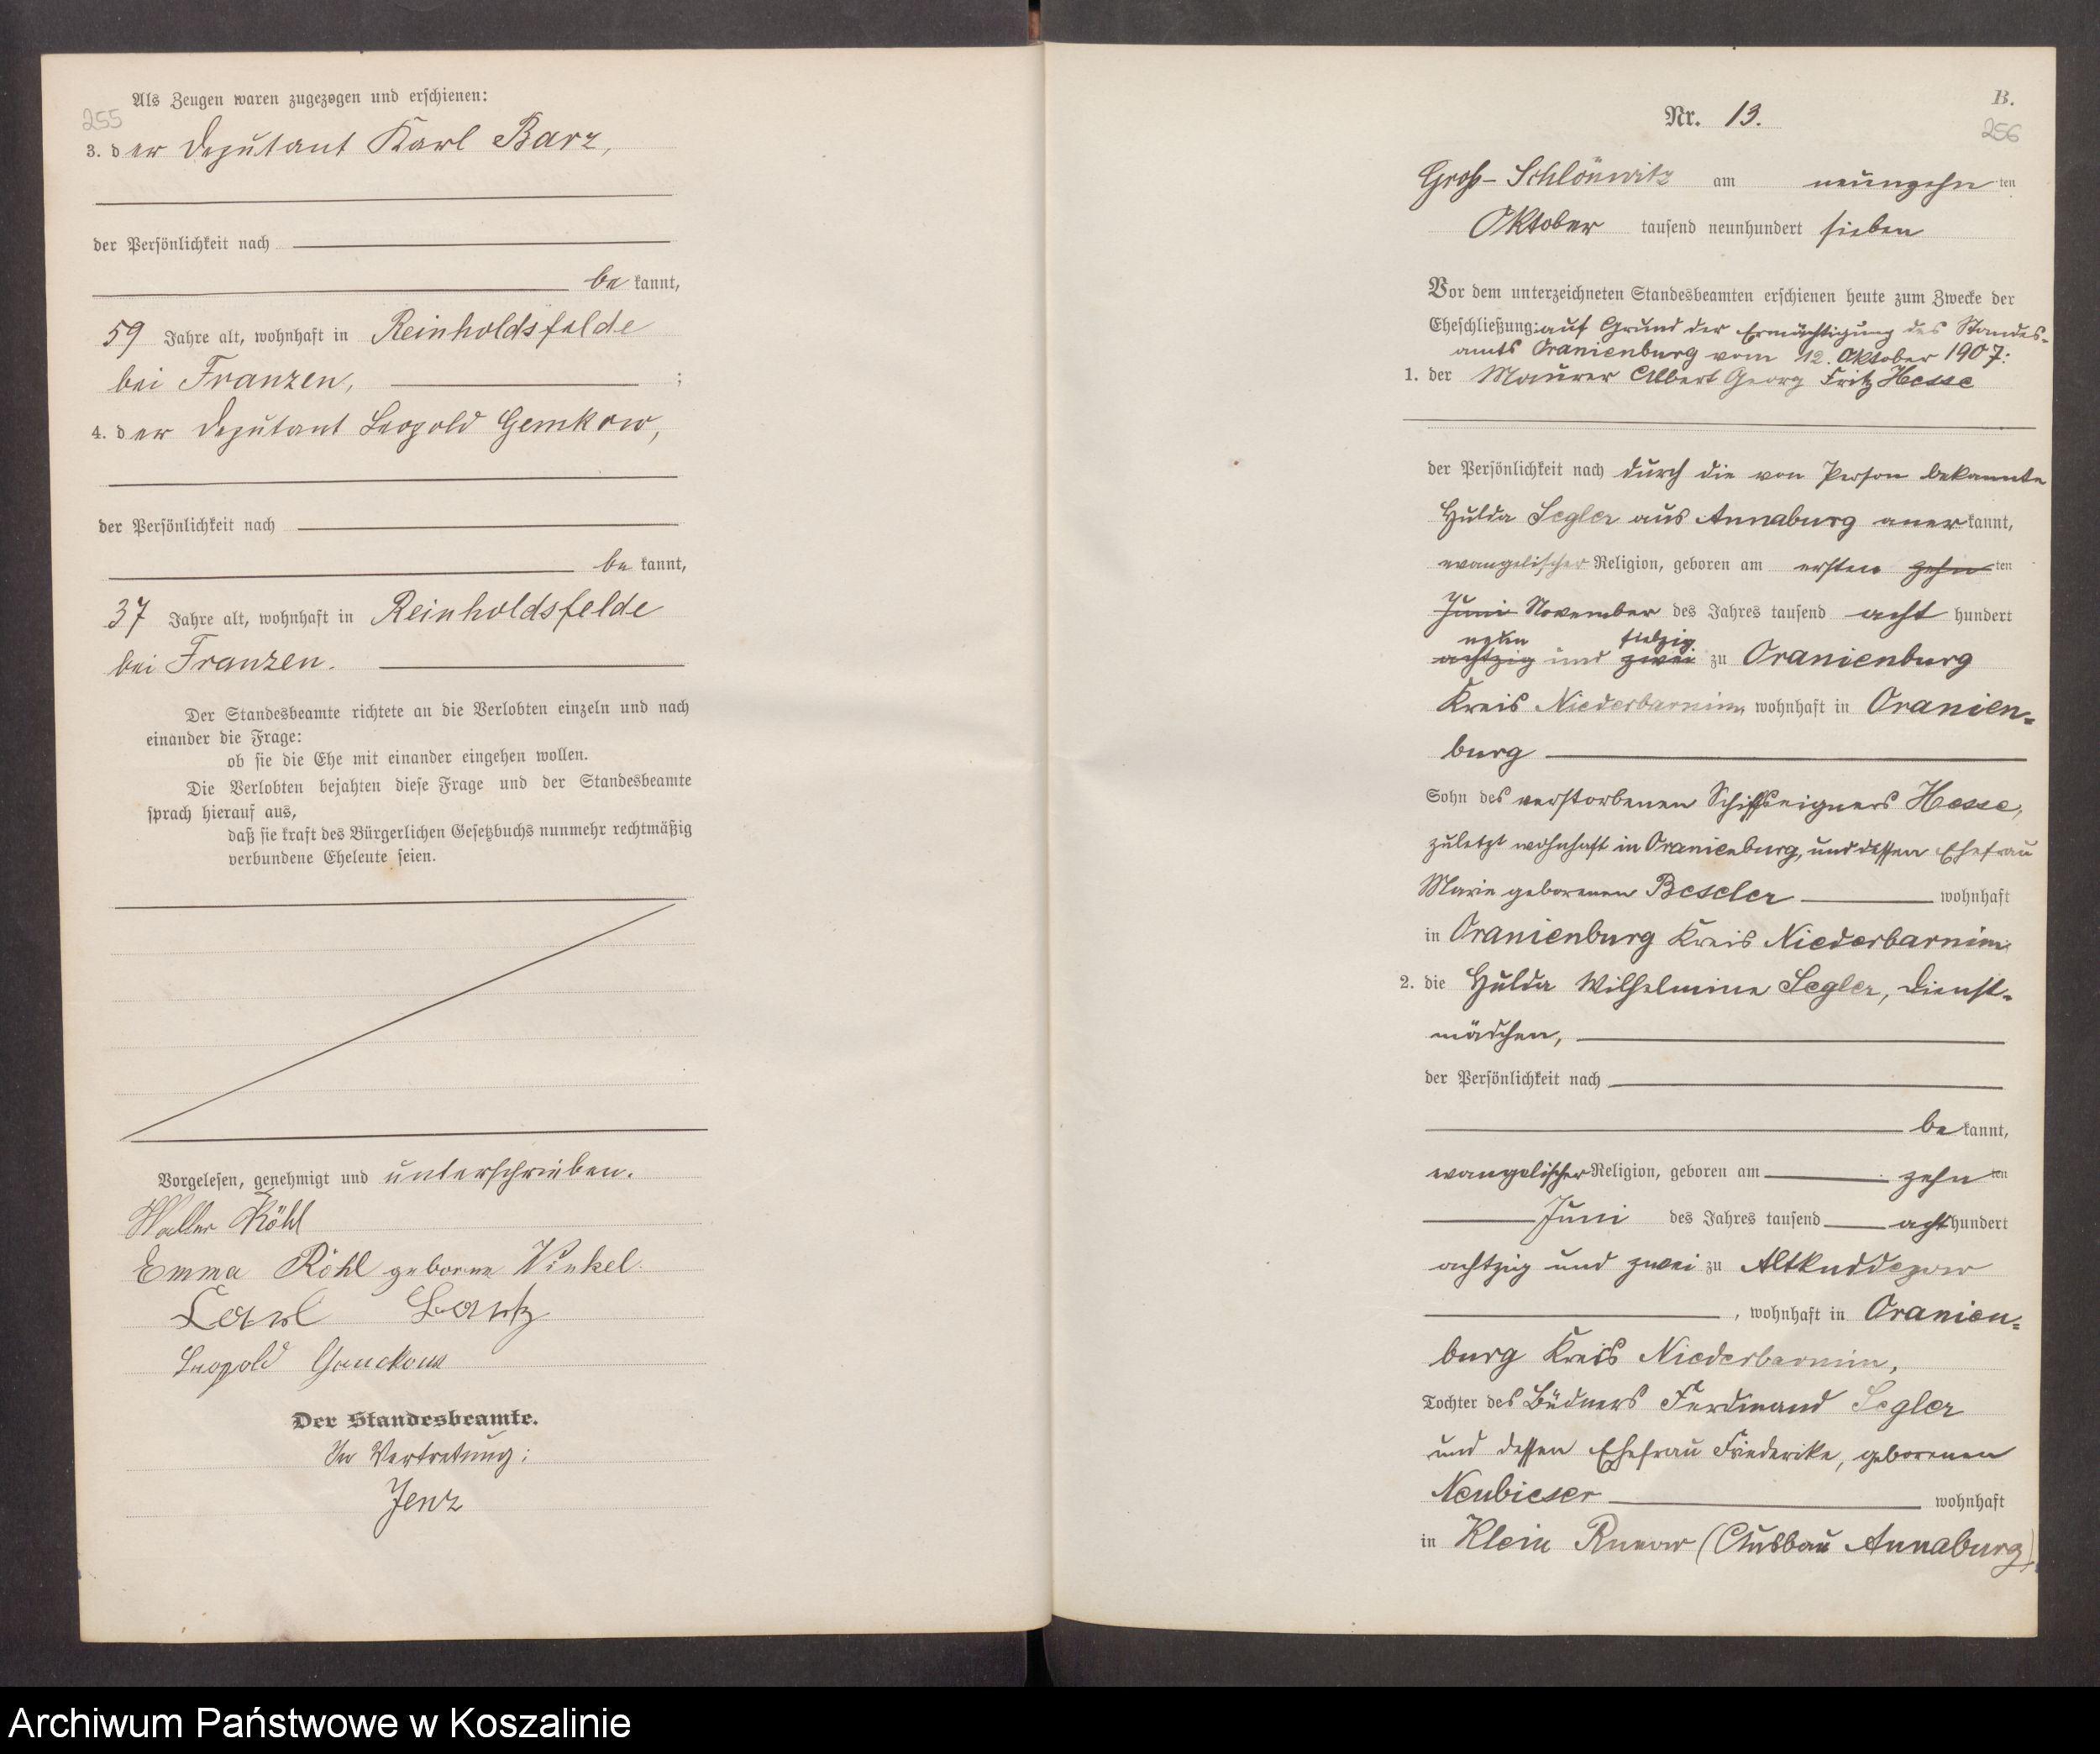 255
Als Zeugen waren zugezogen und erschienen:
3. der Deputant Karl Barz,
der Persönlichkeit nach
be kannt,
59 Jahre alt, wohnhaft in Reinholdsfelde
bei Franzen, ;
4. der Deputant Leopold Gemkow,
der Persönlichkeit nach
be kannt,
37 Jahre alt, wohnhaft in Reinholdsfelde
bei Franzen.
Der Standesbeamte richtete an die Verlobten einzeln und nach
einander die Frage:
ob sie die Ehe mit einander eingehen wollen.
Die Verlobten bejahten diese Frage und der Standesbeamte
sprach hierauf aus,
daß sie kraft des Bürgerlichen Gesetzbuchs nunmehr rechtmäßig
verbundene Eheleute seien.
Vorgelesen, genehmigt und unterschrieben.
Röhl
Emma Röhl geborene Vinkel
Carl
Leopold
Der Standesbeamte.
In Vertretung:
Jenz
B.
256
Nr. 13.
Groß-Schlönwitz am neunzehn ten
Oktober tausend neunhundert sieben
Vor dem unterzeichneten Standesbeamten erschienen heute zum Zwecke der
Eheschließung: auf Grund der Ermächtigung des Standes-
amts Oranienburg vom 12. Oktober 1907:
1. der Maurer Albert Georg Fritz Hesse
der Persönlichkeit nach durch die von Person bekannte
Hulda Segler aus Annaburg aner kannt,
evangelischer Religion, geboren am ersten zehn ten
Juni November des Jahres tausend acht hundert
neun siebzig
achtzig und zwei zu Oranienburg
Kreis Niederbarnim, wohnhaft in Oranien-
burg
Sohn des verstorbenen Schiffseigners Hesse,
zuletzt wohnhaft in Oranienburg, und dessen Ehefrau
Marie geborenen Beseler wohnhaft
in Oranienburg Kreis Niederbarnim
2. die Hulda Wilhelmine Segler, Dienst-
mädchen,
der Persönlichkeit nach
be kannt,
evangelischer Religion, geboren am zehn ten
Juni des Jahres tausend acht hundert
achtzig und zwei zu Altkuddezow
, wohnhaft in Oranien-
burg Kreis Niederbarnim,
Tochter des Büdners Ferdinand Segler
und dessen Ehefrau Friederike, geborenen
Neubieser wohnhaft
in Klein Runow (Ausbau Annaburg)
Archiwum Państwowe w Koszalinie